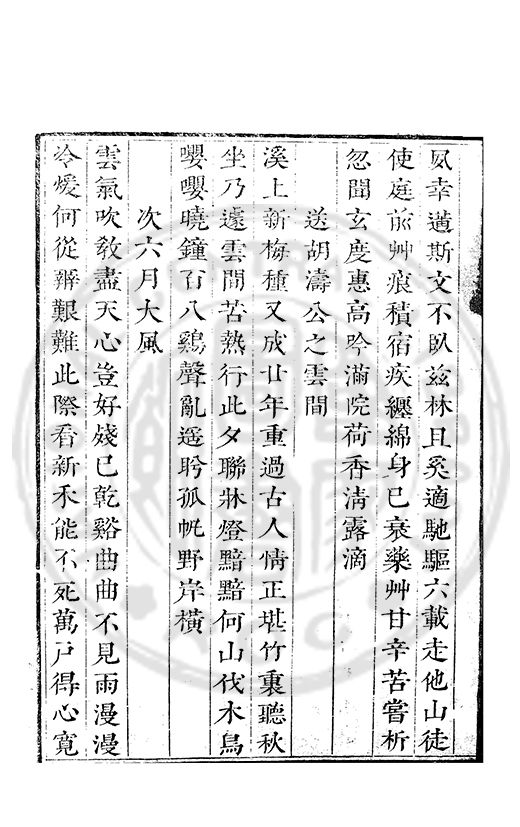 夙幸遵斯文不臥茲林且奚適馳驅六載走他山徒
使庭前艸痕積宿疾纏綿身已衰藥艸甘辛苦嘗析
忽聞玄度惠高吟滿院荷香淸露滴
送胡濤公之雲間
溪上新梅種又成廿年重過古人情正堪竹裏聽秋
坐乃遽雲間苦熱行此夕聯牀燈黯黯何山伐木鳥
嚶嚶曉鐘百八鷄聲亂遥盻孤帆野岸橫
次六月大風
雲氣吹敎盡天心豈好殘已乾谿曲曲不見雨漫漫
冷煖何從辨艱難此際看新禾能不死萬戸得心寬